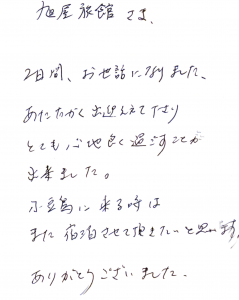 旭屋旅館さま、
2日間、お世話になりました、
あたたかく出迎えて下さり
とても心地良く過ごすことが
出来ました。
小豆島に来る時は
また宿泊させて頂きたいと思います、
ありがとうございました、